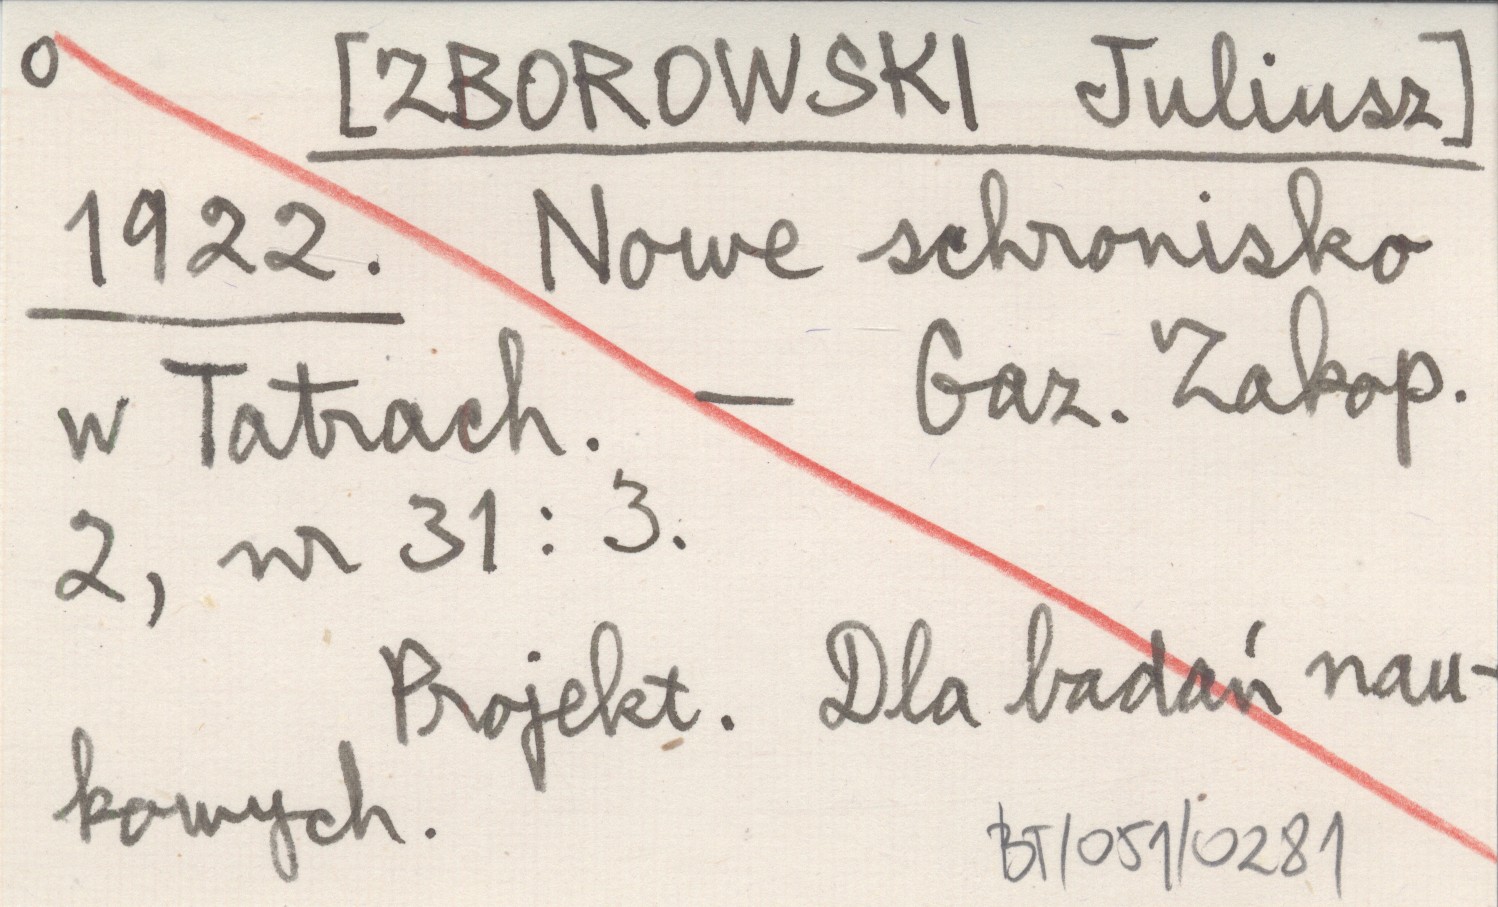 o [ZBOROWSKI Juliusz]
1922. Nowe schronisko
w Tatrach. — Gaz. Zakop.
2, nr 31 : 3.
Projekt. Dla badań nau-
kowych.
BT/051/0281